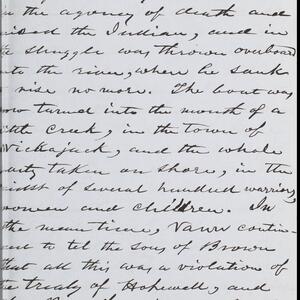 in the agency of death and
the Indian, and in
struggle was thrown overboard
into the river, where he sank
rise no more. The boat was
now turned into the mouth of a
little Creek, in the town of
Nickajack, and the whole
party taken on shore, in the
midst of several hundred warriors,
women and children. In
the mean time, Vann contin-
ued to tel the sons of Brown
that all this was a violation of
the treaty of Hopewell, and